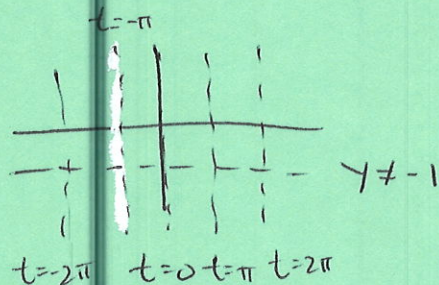 t=-π
y ≠ -1
t=-2π t=0 t=π t=2π